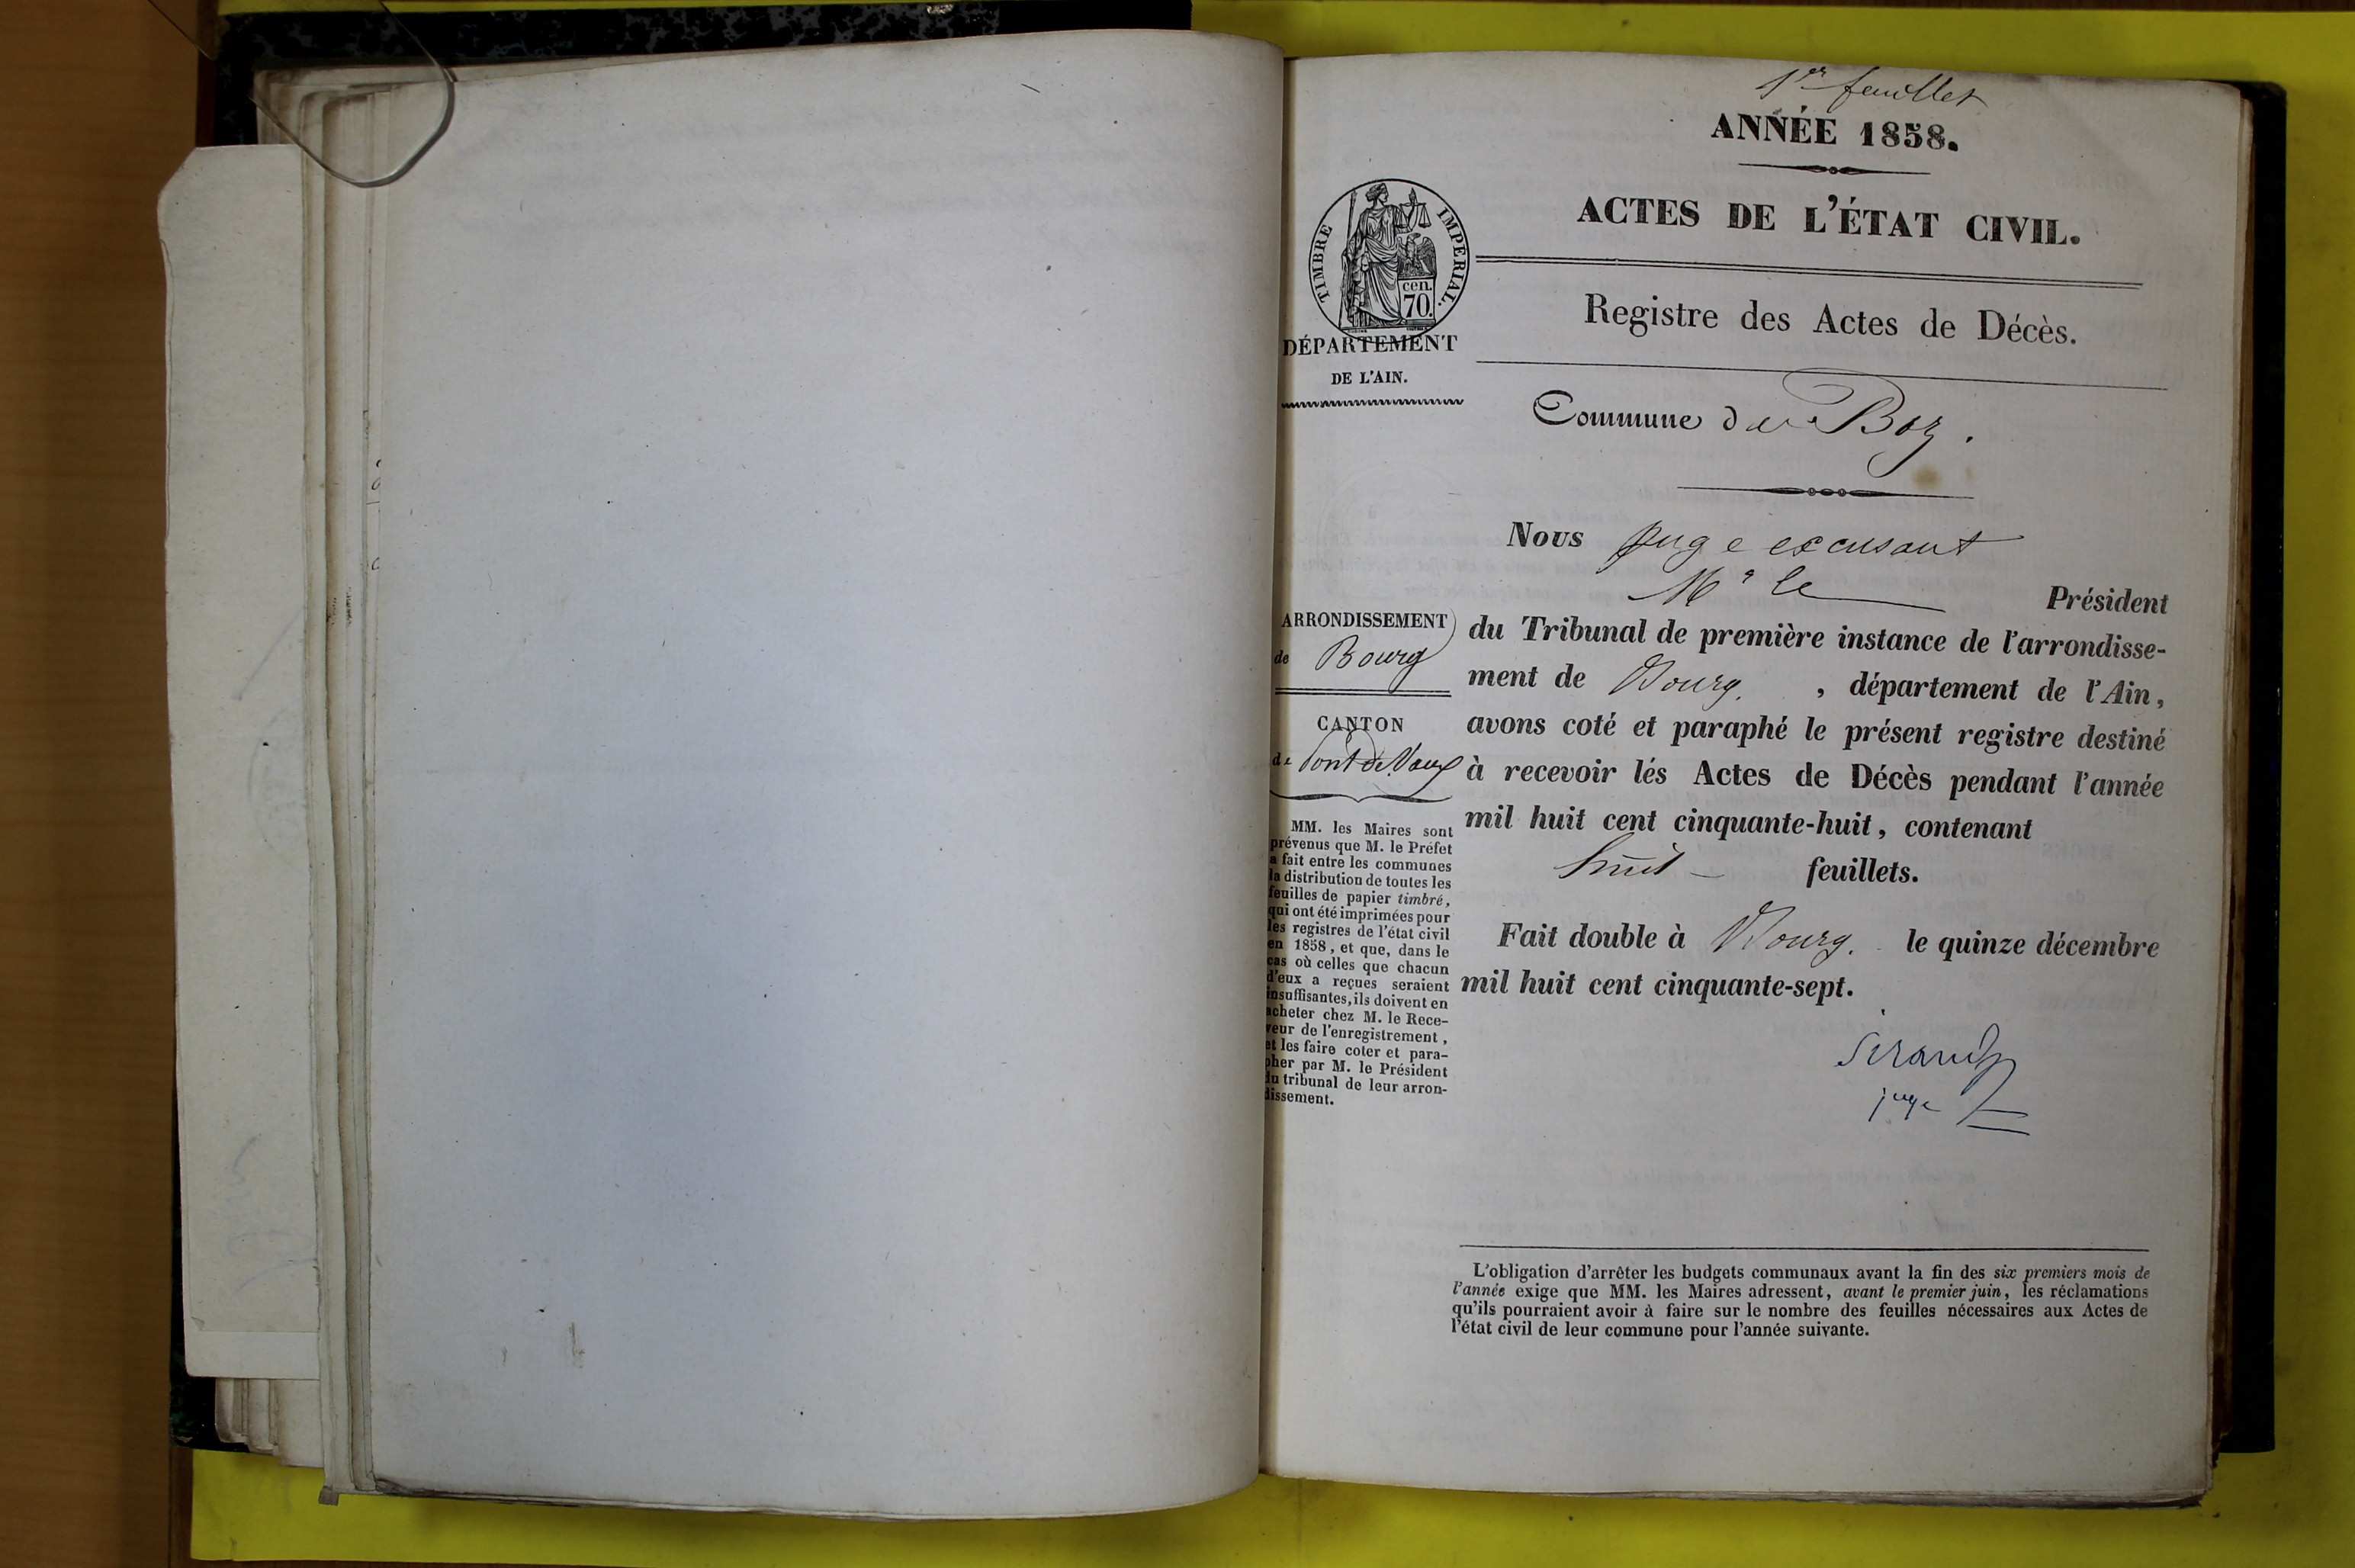 1er feuillet
ANNÉE 1858.
ACTES DE L'ÉTAT CIVIL.
TIMBRE IMPERIAL.
cen.
70.
DÉPARTEMENT
DE L'AIN.
Registre des Actes de Décès.
Commune de Boz.
Nous Juge excusant
Mr le Président
du Tribunal de première instance de l'arrondisse-
ment de Bourg. , département de l'Ain,
avons coté et paraphé le présent registre destiné
à recevoir lés Actes de Décès pendant l'année
mil huit cent cinquante-huit, contenant
huit feuillets.
Fait double à Bourg. le quinze décembre
mil huit cent cinquante-sept.
juge
ARRONDISSEMENT
de Bourg
CANTON
de Pont de Vaux
MM. les Maires sont
prévenus que M. le Préfet
a fait entre les communes
la distribution de toutes les
feuilles de papier timbré,
qui ont été imprimées pour
les registres de l'état civil
en 1858, et que, dans le
cas où celles que chacun
d'eux a reçues seraient
insuffisantes, ils doivent en
acheter chez M. le Rece-
veur de l'enregistrement,
et les faire coter et para-
pher par M. le Président
du tribunal de leur arron-
dissement.
L'obligation d'arrêter les budgets communaux avant la fin des six premiers mois de
l'année exige que MM. les Maires adressent, avant le premier juin, les réclamations
qu'ils pourraient avoir à faire sur le nombre des feuilles nécessaires aux Actes de
l'état civil de leur commune pour l'année suivante.